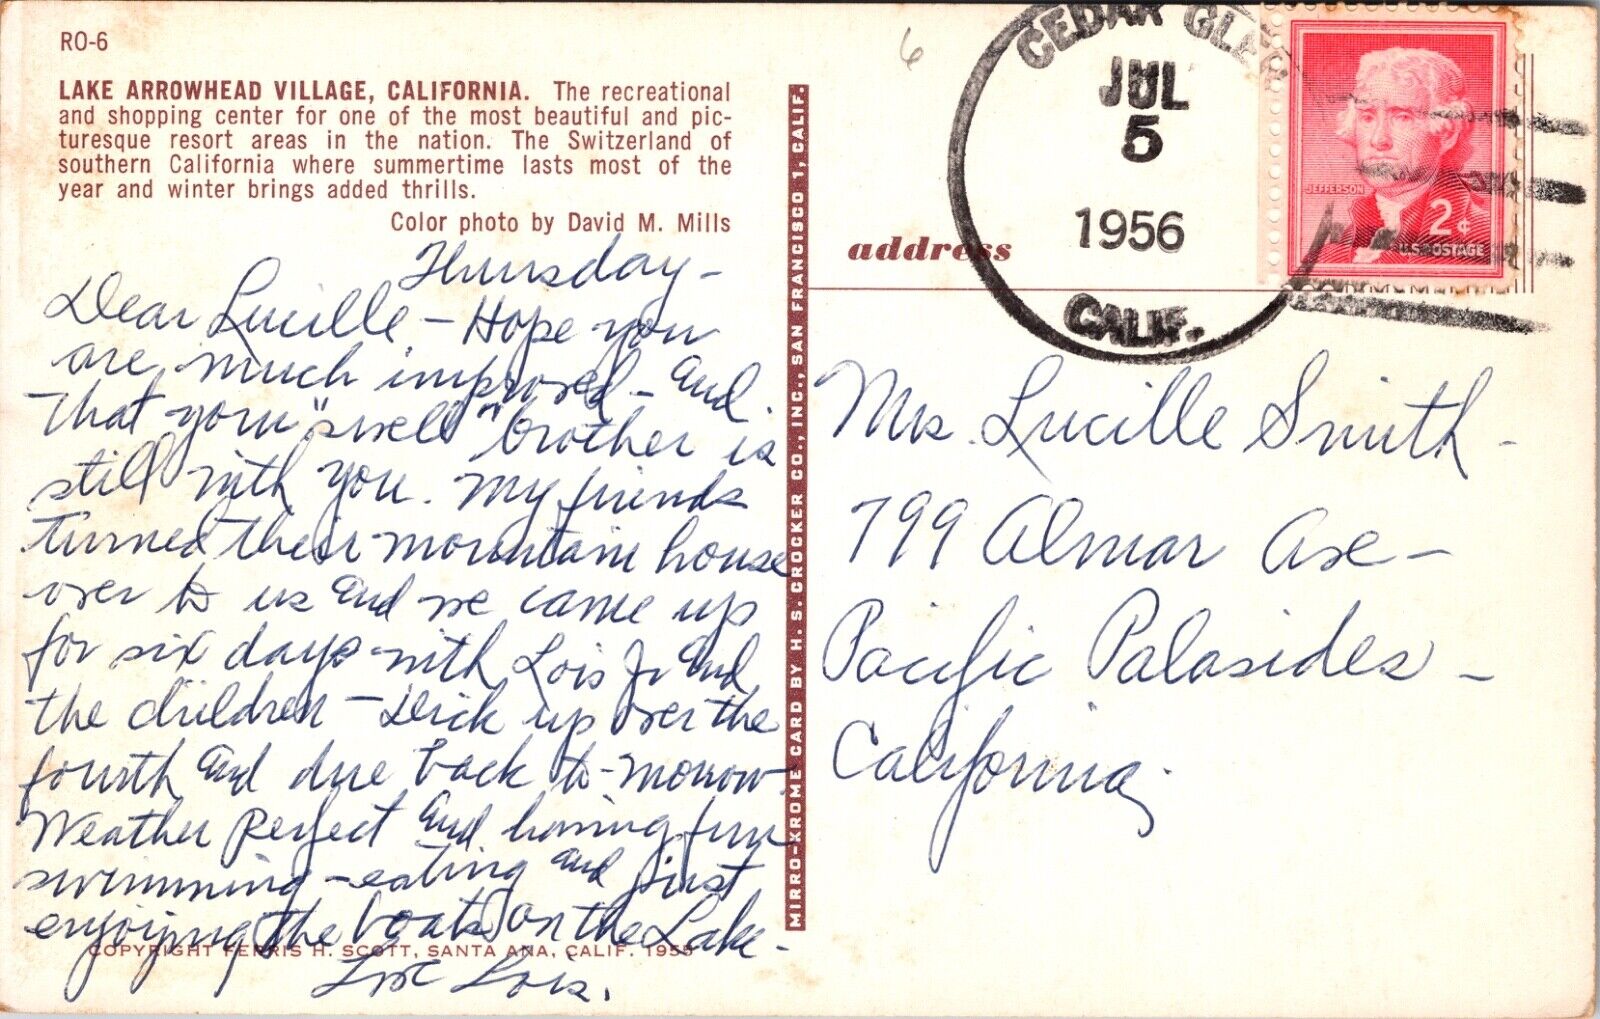 RO-6
LAKE ARROWHEAD VILLAGE, CALIFORNIA. The recreational
and shopping center for one of the most beautiful and pic-
turesque resort areas in the nation. The Switzerland of
southern California where summertime lasts most of the
year and winter brings added thrills.
Color photo by David M. Mills
Thursday -
Dear Lucille - Hope you
are much improved - and
that your "swell" brother is
still with you. My friends
turned their mountain house
over to us and we came up
for six days with Lois Jr and
the children - Dick up over the
fourth and due back to-morrow
Weather perfect and having fun
swimming - eating and just
enjoying the boats on the Lake -
Love Lois.
COPYRIGHT FERRIS H. SCOTT, SANTA ANA, CALIF. 1955
MIRRO-KROME CARD BY H. S. CROCKER CO., INC., SAN FRANCISCO 1, CALIF.
6
CEDAR
JUL
5
1956
CALIF.
JEFFERSON
2¢
U.S. POSTAGE
address
Mrs. Lucille Smith -
799 Almar Ave -
Pacific Palasides -
California.